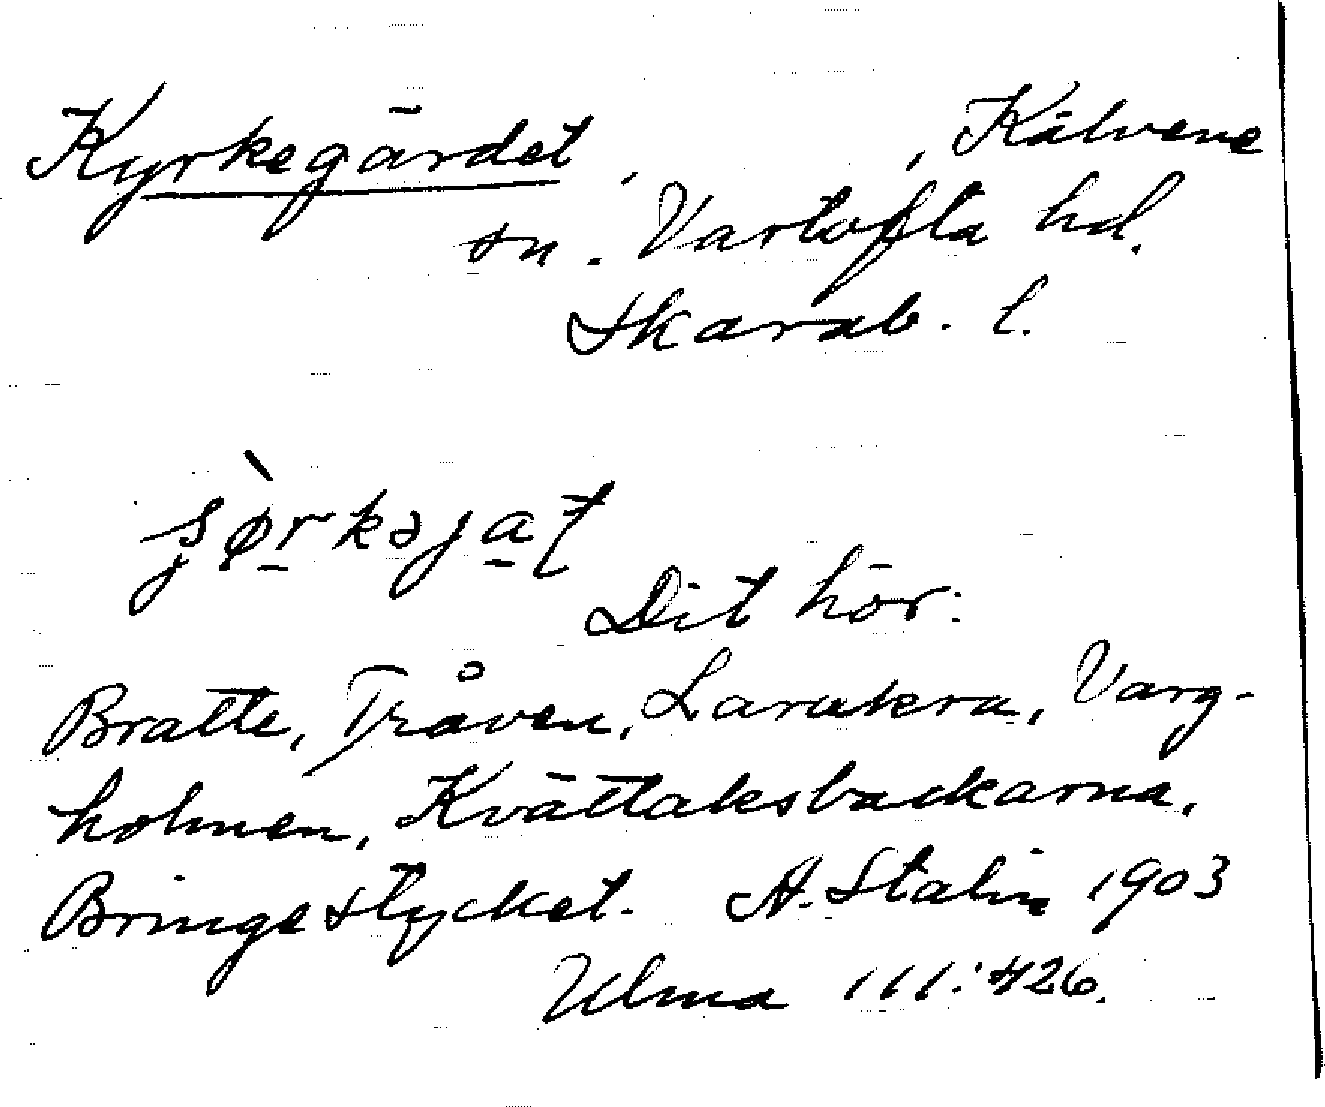 Kyrkegärdet, , Kälvene
sn. Vartofta hd.
Skarab. l.
Dit hör:
Bratte, Tråven, Larakra, Varg-
holmen, Kvättaksbackarna,
Bringestycket. A. Stalin 1903
Ulma 111:426.